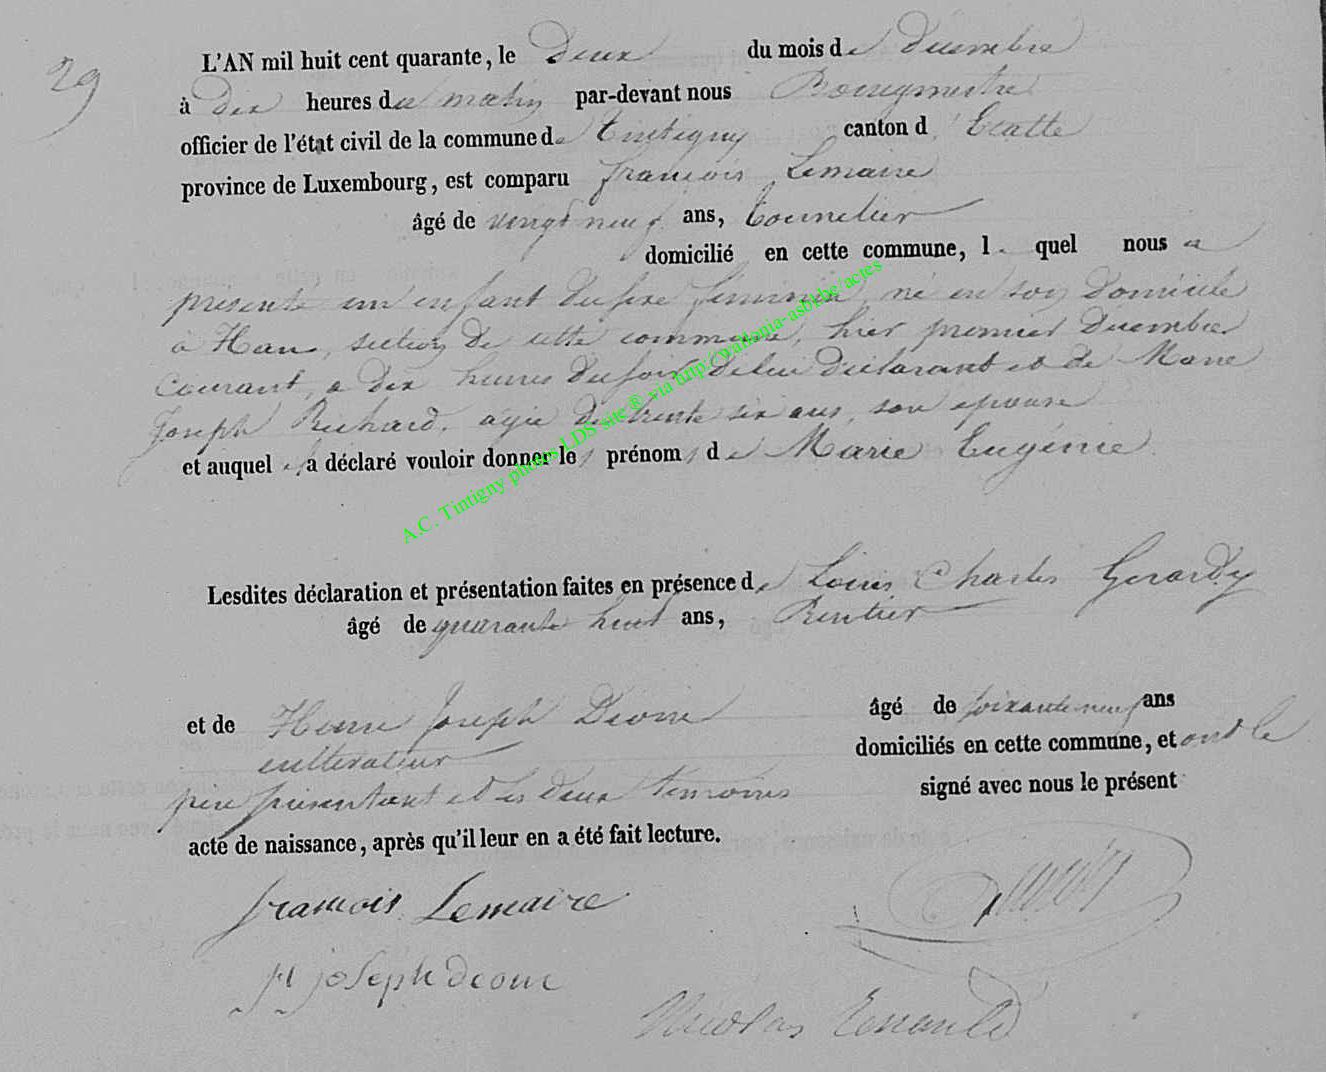 29
L'AN mil huit cent quarante, le Deux du mois de décembre
à dix heures du matin par-devant nous Bourgmestre
officier de l'état civil de la commune de Tintigny canton d'Etalle
province de Luxembourg, est comparu françois Lemaire
âgé de vingt neuf ans, tonnelier
domicilié en cette commune, l quel nous a
présenté un enfant du sexe feminin, né en son domicile
à Han, section de cette commune, hier premier décembre
courant, a dix heures du soir de lui déclarant et de Marie
Joseph Richard, agée de trente six ans, son epouse
et auquel il a déclaré vouloir donner les prénoms de Marie Eugénie.
Lesdites déclaration et présentation faites en présence de Louis Charles Gerardy
âgé de quarante huit ans, Rentier
et de Henri Joseph âgé de soixante neuf ans
cultivateur domiciliés en cette commune, et ont le
pere présentant et les deux témoins signé avec nous le présent
acte de naissance, après qu'il leur en a été fait lecture.
françois Lemaire
joseph
Nicolas
A.C. Tintigny photos LDS site ® via http://wallonia-asbl.be/actes